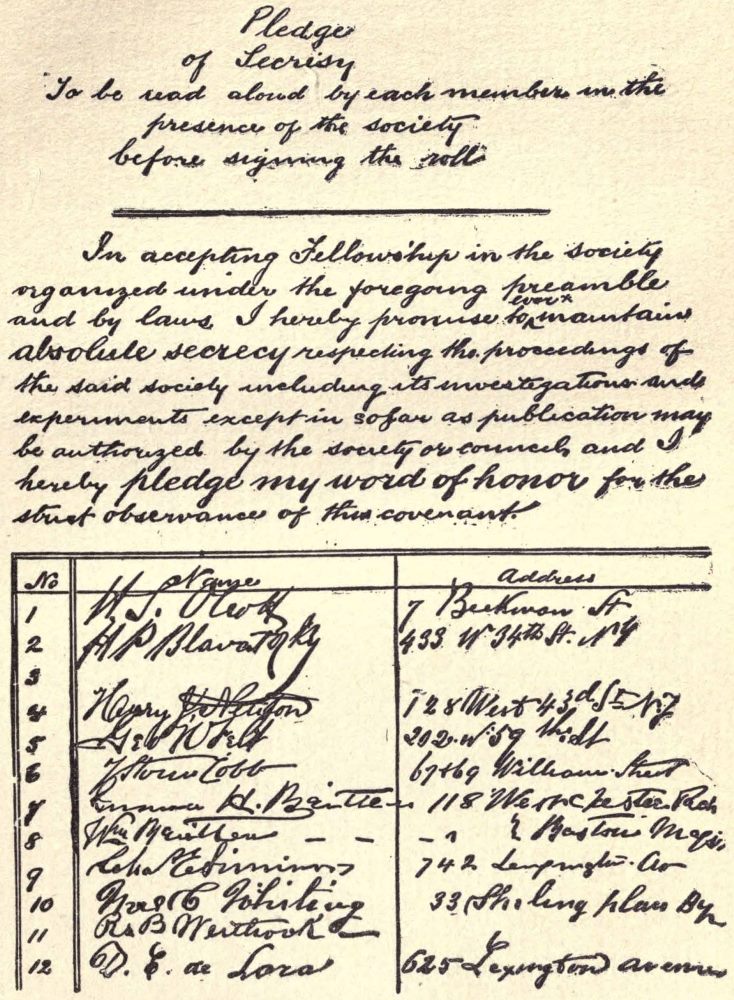 Pledge
of Secrisy
To be read aloud by each member in the
presence of the society
before signing the roll
In accepting Fellowship in the society
organized under the foregoing preamble
and by laws, I hereby promise to ever maintain
absolute secrecy respecting the proceedings of
the said society including its investigations and
experiments except in sofar as publication may
be authorized by the society or council, and I
hereby pledge my word of honor for the
strict observance of this covenant.
No Name Address
1 H. S. Olcott 7 Beekman St
2 H P Blavatsky 433 W 34th St. N Y
3
4 Henry J. Newton 128 West 43rd St N.Y
5 Geo H Felt 202 W. 59th St
6 J Storer Cobb 67 & 69 William Street
7 Emma H. Britten 118 Westchester Park
8 Wm Britten - - - " " Boston Mass.
9 Simmons 742 Lexington Av
10 33 Place
11 B Westbrook
12 D. E. de Lara 625 Lexington avenue